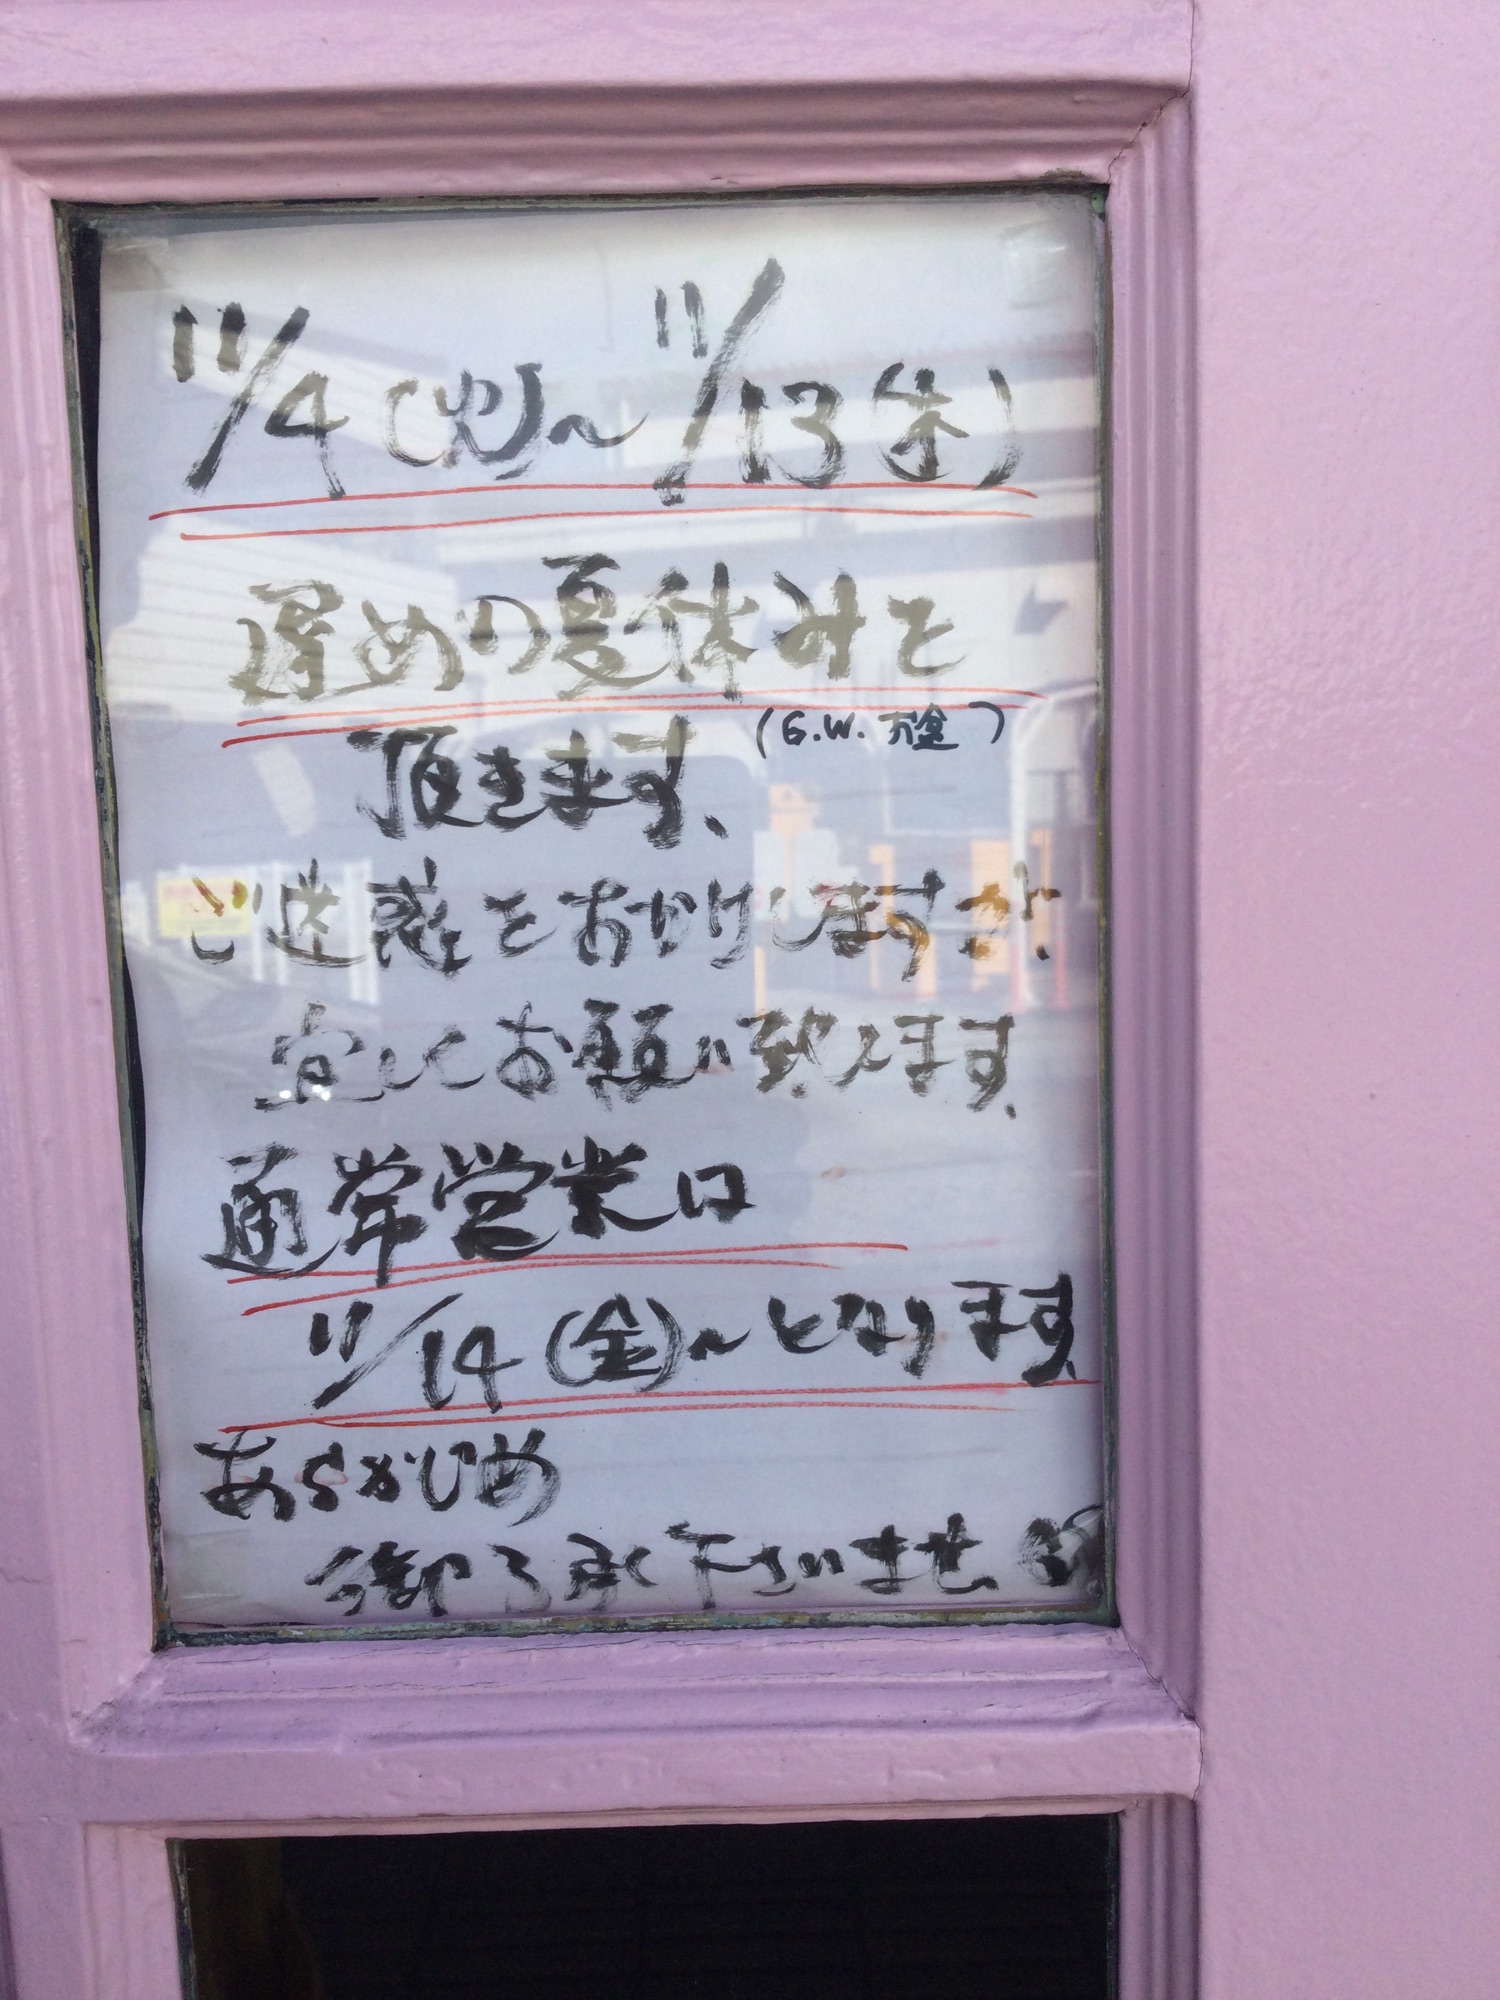 11/4(火)〜11/13(木)
遅めの夏休みを
(G.W. お盆)
頂きます、
ご迷惑をおかけしますが、
宜しくお願い致します、
通常営業は
11/14(金)〜となります、
あらかじめ
御了承下さいませ、